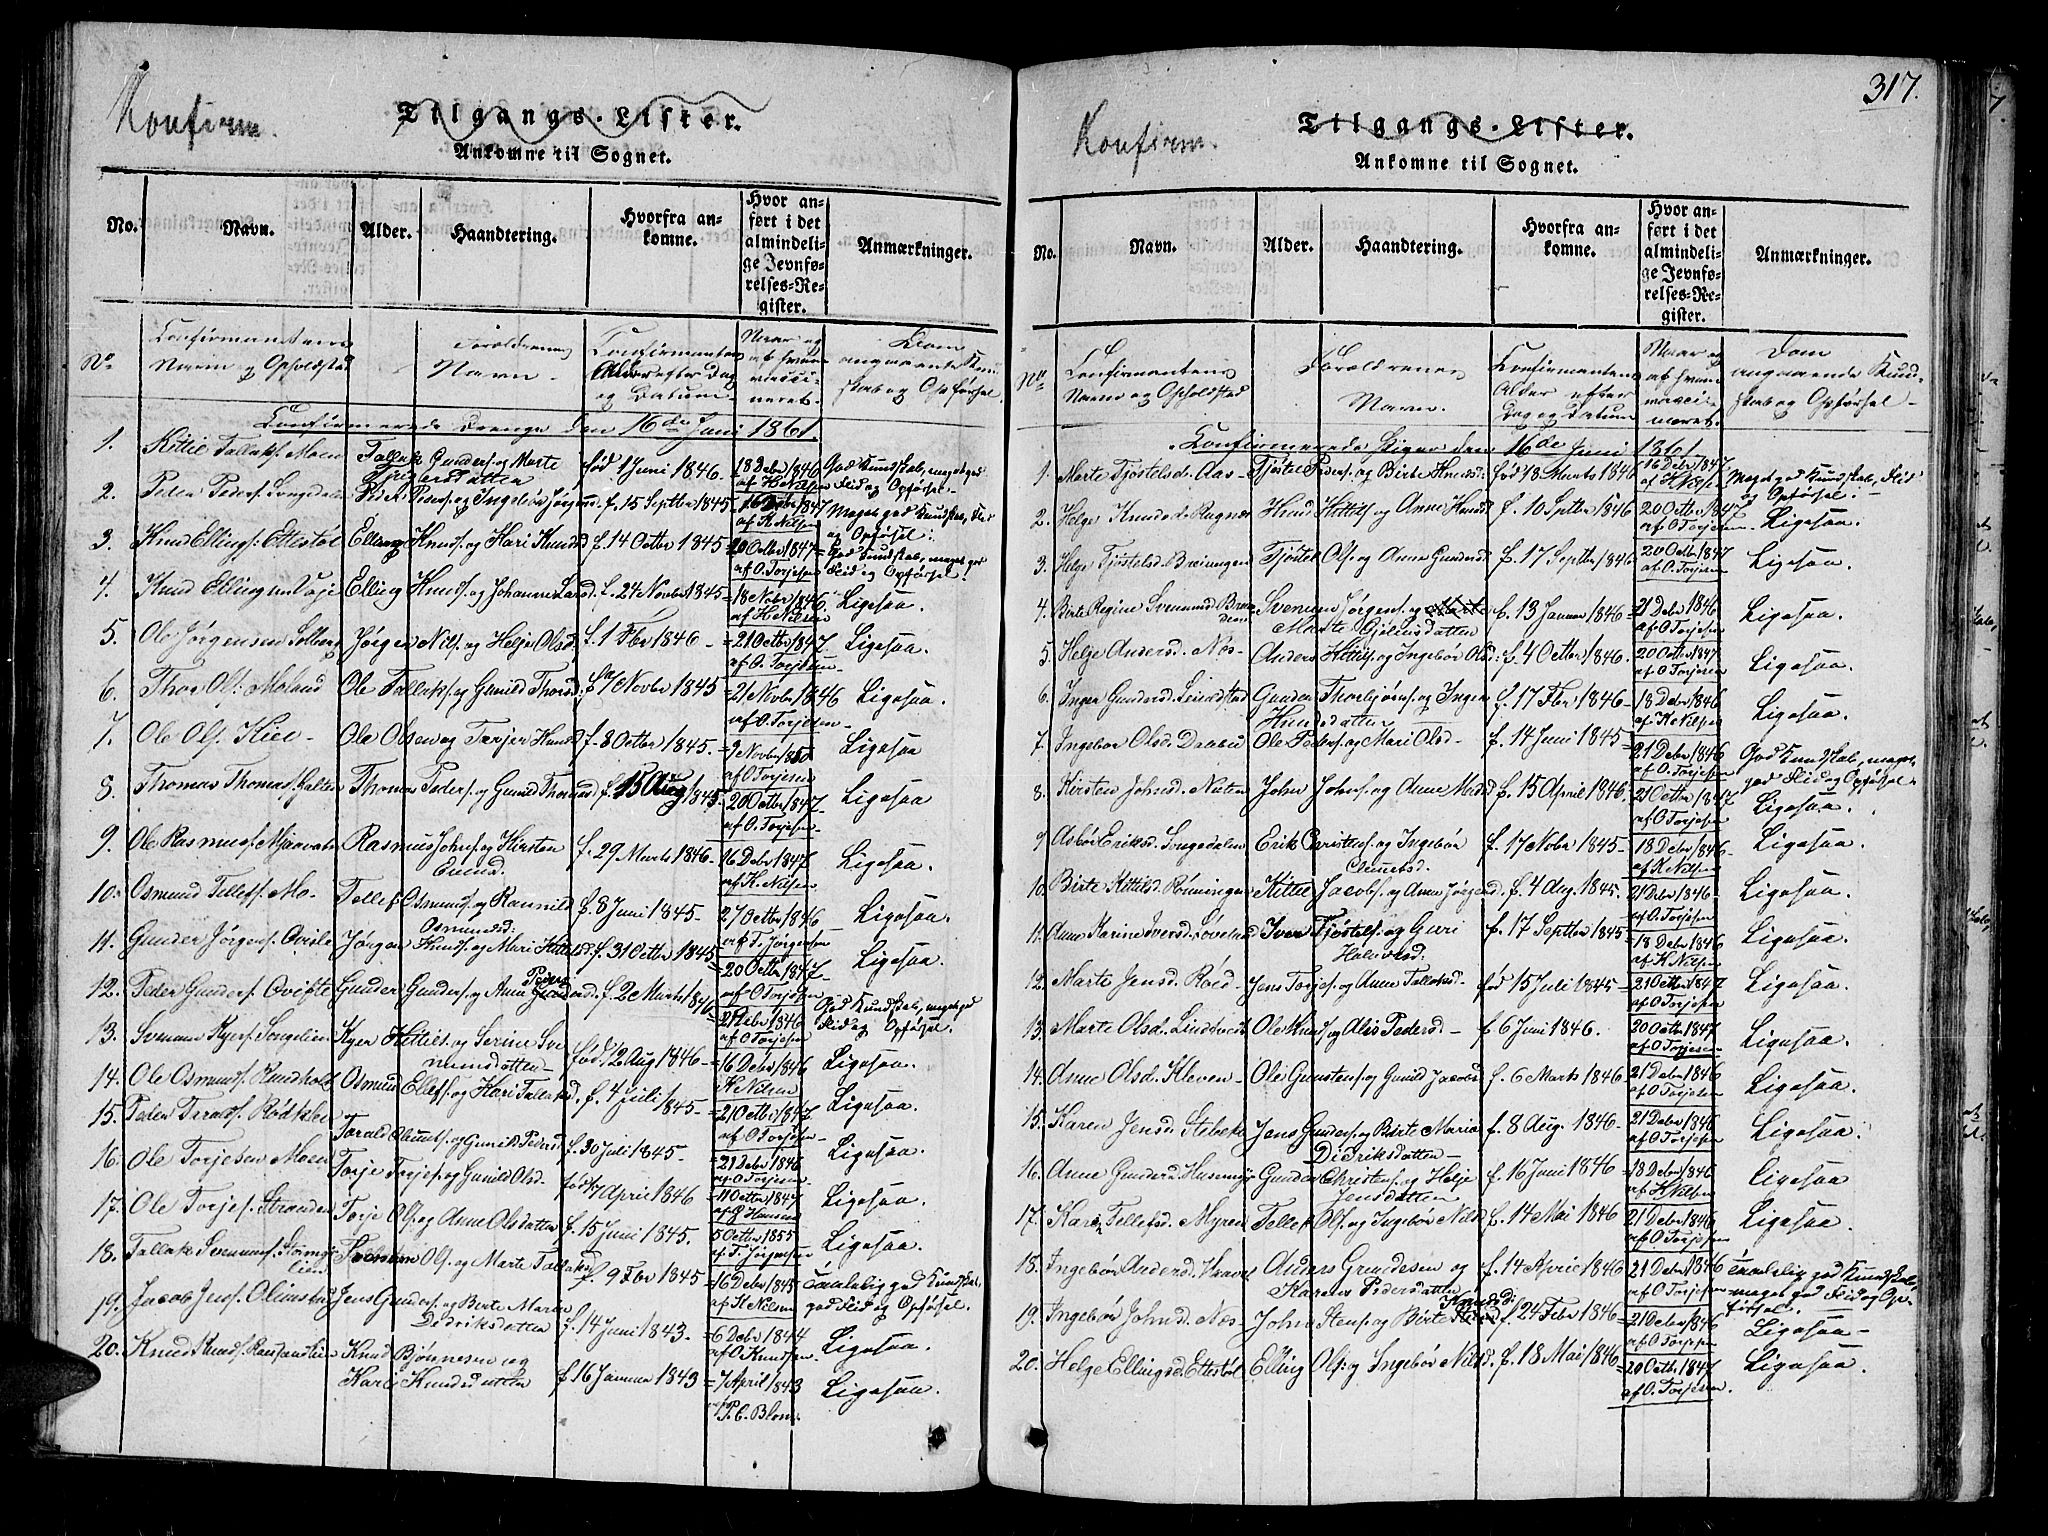 Konfirm.
Tilgangs-Lister.
Ankomne til Sognet.
No. Navn. Alder. Haandtering. Hvorfra an-
komne. Hvor an-
ført i det
almindeli-
ge Jevnfø-
relses-Re-
gister. Anmærkninger.
No Confirmantens
Navn og Opholdsted
Forældrenes
Navn.
Confirmantens
Alder efter Dag
og Datum.
Naar og
af hvem
vacci-
neret.
Dom
angaaende Kund-
skab og Opførsel
Confirmerede Drenge den 16de Juni 1861.
1. Kittil Tallaks. Moen Tallak Gunders. og Marte
født 1 Juni 1846. 18 Debr 1846
af K Nilsen God Kundskab, meget god
Flid og Opførsel.
2. Peder Peders. Songedalen Peder Peders. og Ingebør Jørgensd f. 15 Septbr 1845 16 Debr 1847
af K. Nilsen Meget god Kundskab, Flid
og Opførsel.
3. Knud Ellings. Ettestøl Elling Knuds. og Kari Knudsd f. 14 Octbr 1845 20 Octbr 1847
af O. Torjesen God Kundskab, meget god
Flid og Opførsel.
4. Knud Elling Knuds. og Johanne Larsd f. 24 Novbr 1845 18 Nobr 1846
af K Nilsen Ligesaa.
5. Ole Jørgensen Solberg Jørgen Nils. og Helje Olsd. f. 1 Fbr 1846 21 Octbr 1847
af O. Torjesen Ligesaa.
6. Thor Ols. Moland Ole Tallaks. og Gunild Thorsd. Novbr 1845 21 Novbr 1846
af O. Torjesen Ligesaa.
7. Ole Ols. Kiee Ole Olsen og Terjer Knudsd f. 8 Octbr 1845. 9 Novbr 1850
af O Torjesen Ligesaa
8. Thomas Thomas. Galten Thomas Peders. og Gunild Thomasd f. 15 Aug 1845. 20 Octbr 1847
af O. Torjesen Ligesaa
9. Ole Rasmus. Mjaavatn Rasmus Johns. og Kirsten
f. 29 Marts 1846 16 Debr 1847
af K. Nilsen Ligesaa.
10. Osmund Tellefs. Mo Tellef Osmunds. og Rannild
Osmundsd: f. 8 Juni 1845 27 Octbr 1846
af T. Jørgensen Ligesaa.
11. Gunder Jørgens. Jørgen Knuds. og Mari Kittelsd f. 31 Octbr 1845 20 Octbr 1847
af O Torjesen Ligesaa.
12. Peder Gunders. Gunder Gunders. og Anne f. 2 Marts 1846 21 Debr 1846
af O Torjesen God Kundskab, meget god
Flid og Opførsel.
13. Svenum Kjers. Songelien Kjer Kittils. og Serine Sve-
numsdatter født 12 Aug 1846 16 Debr 1846
K Nilsen Ligesaa
14. Ole Osmunds. Rundholt Osmund Ellefs. og Kari Tallaksd f. 4 Juli 1845 21 Octbr 1847
af O. Torjesen Ligesaa.
15. Peder Terals. Rødkleiv Torald Clemets. og Gunild Pedersd f. 30 Juli 1845 21 Debr 1846
af O Torjesen Ligesaa.
16. Ole Torjesen Moen Torje Torjes. og Gunild Olsd. født 7 April 1846 11 Octbr 1847
af J Hansen Ligesaa.
17. Ole Torjes. Stranden Torje Ols. og Anne Olsdatter f. 15 Juni 1845. 5 Octbr 1855
af T. Jørgensen Ligesaa.
18. Tallak Svenums. Svenum Ols. og Marte Tallaksd f. 9 Fbr 1845 16 Debr 1845
af K Nilsen Taalelig god Kundskab,
god Flid og Opførsel.
19. Jacob Jens. Jens Gunders. og Berte Marie
Dedriksdatter f. 14 Juni 1843. 6 Debr 1844
af O. Knudsen Ligesaa.
20. Knud Knuds. Knud Bjønnesen og
Kari Knudsdatter f. 16 Januar 1843 7 April 1843
P. C. Blom Ligesaa.
317.
Konfirm.
Tilgangs-Lister.
Ankomne til Sognet.
No. Navn. Alder. Haandtering. Hvorfra an-
komne. Hvor an-
ført i det
almindeli-
ge Jevnfø-
relses-Re-
gister. Anmærkninger.
No Confirmantens
Navn og Opholdsted
Forældrenes
Navn.
Confirmantens
Alder efter
Dag og Datum
Naar og
af hvem
vacci-
neret.
Dom
angaaende Kund-
skab og Opførsel
Confirmerede Piger den 16de Juni 1861
1. Marte Tjøstelsd. Aas Tjøstel Peders. og Birte Knudsd. født 18 Marts 1846 16 Debr 1847
af K Nilsen Meget god Kundskab, Flid
og Opførsel.
2. Helge Knudsd. Knud Kittils. og Anne Knudsd f. 10 Septbr 1846 20 Octbr 1847
af O Torjesen Ligesaa.
3. Helge Tjøstelsd. Tjøstel Ols. og Anne Gundersd f. 17 Septbr 1846 20 Octb. 1847
af O. Torjesen Ligesaa.
4. Birte Regine Svenumsd Svenum Jørgens. og
Marte f. 13 Januar 1846 21 Debr 1846
af O Torjesen Ligesaa.
5. Helje Andersd. Næs Anders Kittils. og Ingebør Olsd: f. 4 Octbr 1846. 20 Octbr 1847
af O. Torjesen Ligesaa.
6. Inger Gundersd. Gunder Thorbjørns. og Inger
Knudsdatter f. 17 Fbr 1846 18 Debr 1846
af K Nilsen Ligesaa.
7. Ingebør Olsd. Ole Peders. og Mari Olsd f. 14 Juni 1845 21 Debr 1846
af O. Torjesen God Kundskab, meget
god Flid og Opførsel.
8. Kirsten Johnsd. John Johns. og Anne f. 15 April 1846. 21 Octbr 1847
af O Torjesen Ligesaa.
9 Asbør Eriksd. Songedalen Erik Christens. og Ingebør
Clemetsd. f. 17 Nobr 1845 18 Debr 1846
af K Nilsen Ligesaa.
10. Birte Kittilsd. Rønningen Kittil Jacobs. og Anne Jørgensd f. 4 Aug. 1845. 21 Debr 1846
af O Torjesen Ligesaa.
11. Anne Karine Iversd. Iver Tjøstels. og Guri
f. 17 Septbr 1845 18 Debr 1846
af K. Nilsen Ligesaa.
12. Marte Jensd. Røed Jens Torjes. og Anne Tallaksd. født 15 Juli 1845 21 Octbr 1847
af O Torjesen Ligesaa.
13. Marte Olsd. Ole Knuds. og Alis Pedersd f. 6 Juni 1846. 20 Octbr 1847
af O Torjesen Ligesaa.
14. Anne Olsd. Kleven Ole Gunstens. og Gunild Jacobsd f. 6 Marts 1846 21 Debr 1846
af O Torjesen Ligesaa.
15. Karen Jensd. Jens Gunders. og Birte Maria
Didriksdatter f. 8 Aug. 1846 21 Debr 1846
af O Torjesen Ligesaa.
16. Anne Gundersd. Husmyr Gunder Christens. og Helje
Jensdatter f. 16 Juni 1846 18 Debr 1846
af K. Nilsen Ligesaa
17. Kari Tellefsd. Myren Tellef Ols. og Ingebør Nilsd f. 14 Mai 1846 21 Debr 1846
af O Torjesen Ligesaa.
18. Ingebør Andersd. Anders Grundesen og
Karen Pedersdatter f. 14 April 1846 21 Debr 1846
af O Torjesen Taalelig god Kundskab
meget god Flid og Op-
førsel.
19. Ingebør Johnsd. Næs John Stens. og Birte Knudsd: f. 24 Febr 1846 21 Debr 1846
af O Torjesen Ligesaa
20. Helge Ellingsd. Ettestøl Elling Ols. og Ingebør Nilsd. f. 18 Mai 1846 20 Octbr 1847
af O. Torjesen Ligesaa.